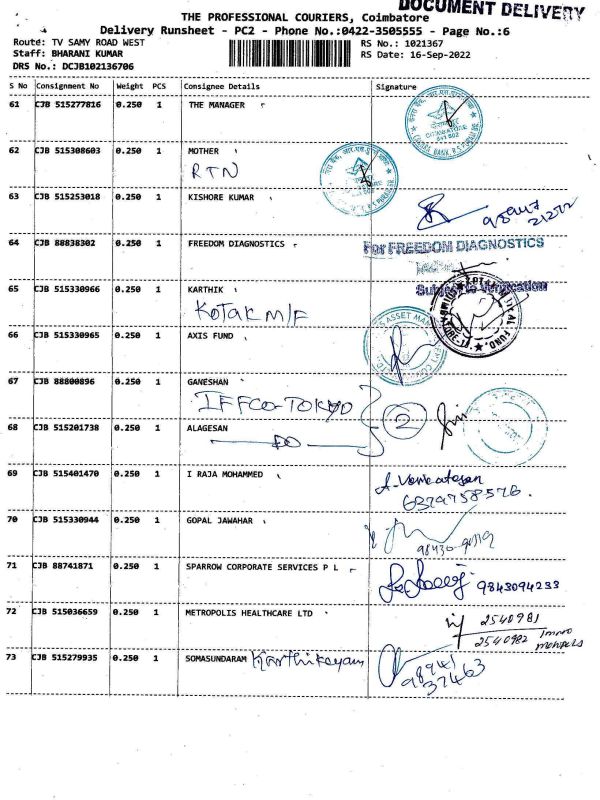 DOCUMENT DELIVERY
THE PROFESSIONAL COURIERS, Coimbatore
Delivery Runsheet - PC2 - Phone No.:0422-3505555 - Page No.:6
Route: TV SAMY ROAD WEST RS No.: 1021367
Staff: BHARANI KUMAR RS Date: 16-Sep-2022
DRS No.: DCJB102136706
S No Consignment No Weight PCS Consignee Details Signature
61 CJB 515277816 0.250 1 THE MANAGER
62 CJB 515308603 0.250 1 MOTHER
RTN
63 CJB 515253018 0.250 1 KISHORE KUMAR
21272
64 CJB 88838302 0.250 1 FREEDOM DIAGNOSTICS For FREEDOM DIAGNOSTICS
Subject to Verification
65 CJB 515330966 0.250 1 KARTHIK
KOTAK M/F
66 CJB 515330965 0.250 1 AXIS FUND
67 CJB 88800896 0.250 1 GANESHAN
IFFCO-TOKYO 2
68 CJB 515201738 0.250 1 ALAGESAN
DO
69 CJB 515401470 0.250 1 I RAJA MOHAMMED A. Venkatesan
6379758576.
70 CJB 515330944 0.250 1 GOPAL JAWAHAR
71 CJB 88741871 0.250 1 SPARROW CORPORATE SERVICES P L 9843094233
72 CJB 515036659 0.250 1 METROPOLIS HEALTHCARE LTD 2540981
2540982
73 CJB 515279935 0.250 1 SOMASUNDARAM Karthikeyan
98941
37463